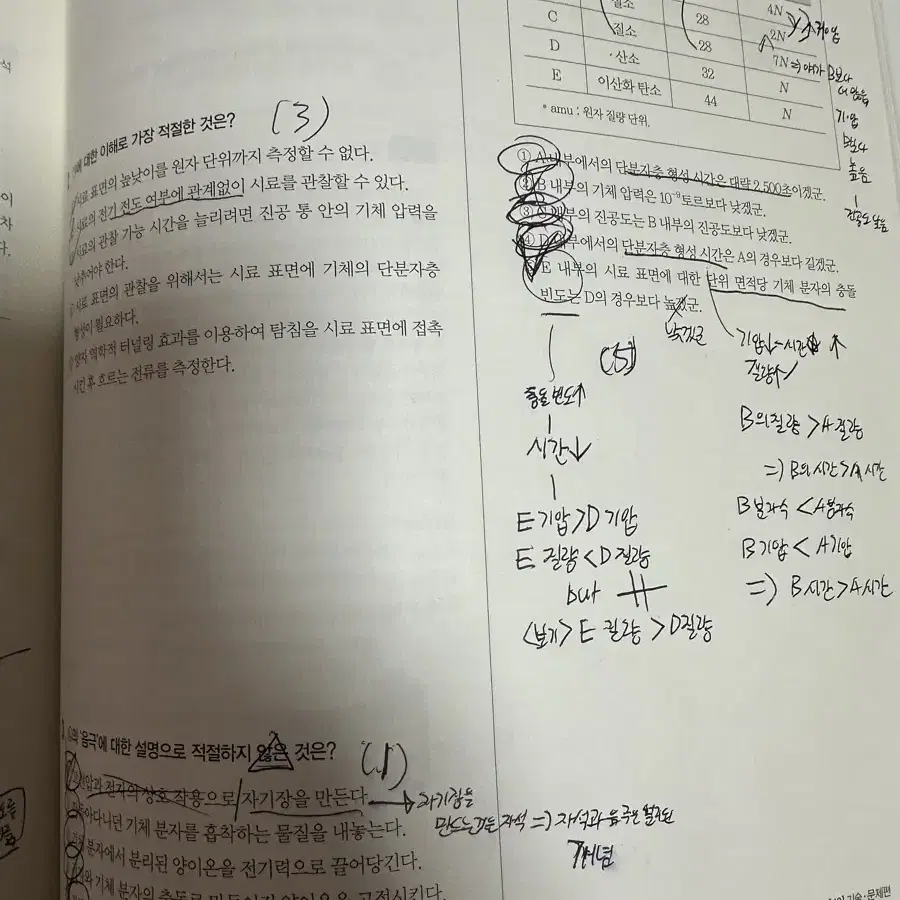 석
이
차
다.
에 대한 이해로 가장 적절한 것은? (3)
시료 표면의 높낮이를 원자 단위까지 측정할 수 없다.
시료의 전기 전도 여부에 관계없이 시료를 관찰할 수 있다.
시료의 관찰 가능 시간을 늘리려면 진공 통 안의 기체 압력을
낮추어야 한다.
시료 표면의 관찰을 위해서는 시료 표면에 기체의 단분자층
형성이 필요하다.
양자 역학적 터널링 효과를 이용하여 탐침을 시료 표면에 접촉
시킨 후 흐르는 전류를 측정한다.
'음극'에 대한 설명으로 적절하지 않은 것은? (1)
전자의 상호 작용으로 자기장을 만든다.
자기장을
만드는건 자석 => 자석과 음극은
개념
돌아다니던 기체 분자를 흡착하는 물질을 내놓는다.
기체 분자에서 분리된 양이온을 전기력으로 끌어당긴다.
기체 분자의 충돌로 만들어진 양이온을 고정시킨다.
질소 4N
C 질소 28 2N
D 산소 28 7N
E 이산화 탄소 32 N
44 N
* amu : 원자 질량 단위.
B보다
기압
B보다
높음
① A 내부에서의 단분자층 형성 시간은 대략 2,500초이겠군.
② B 내부의 기체 압력은 10⁻⁹토르보다 낮겠군.
③ 내부의 진공도는 B 내부의 진공도보다 낮겠군.
④ D 내부에서의 단분자층 형성 시간은 A의 경우보다 길겠군.
E 내부의 시료 표면에 대한 단위 면적당 기체 분자의 충돌
빈도는 D의 경우보다 높겠군.
낮겠군
(5)
충돌 빈도↑
시간↓
E 기압 > D 기압
E 질량 < D 질량
but
<보기> E 질량 > D질량
기압↓ - 시간 ↑
질량↑
B의 질량 > A 질량
=> B의 시간 > A 시간
B 분자수 < A분자수
B 기압 < A기압
=> B 시간 > A 시간
기술·문제편